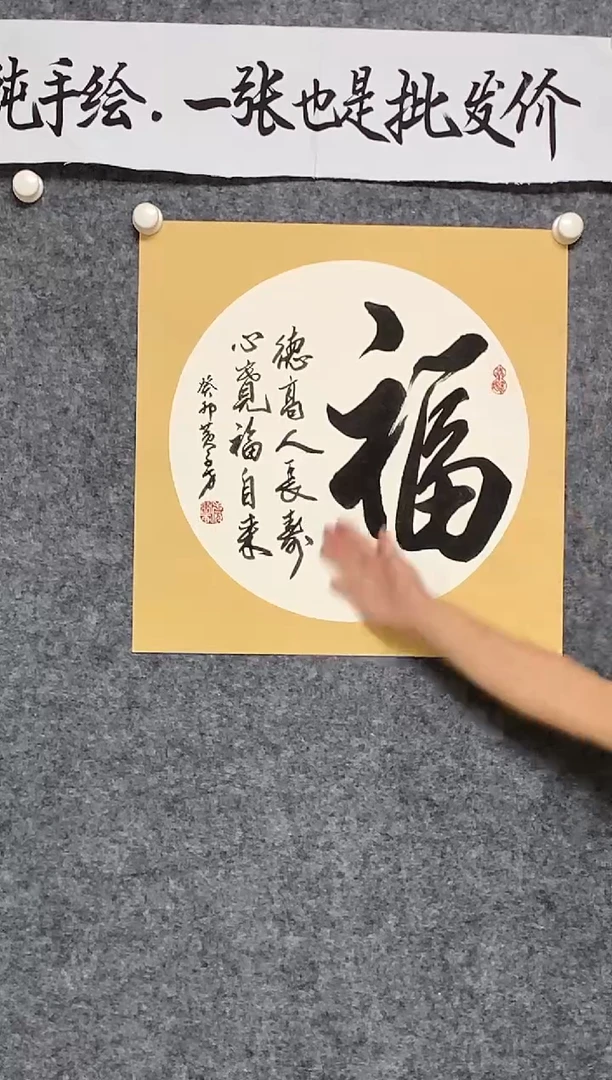 纯手绘.一张也是批发价
福
德高人长寿
心宽福自来
癸卯黄